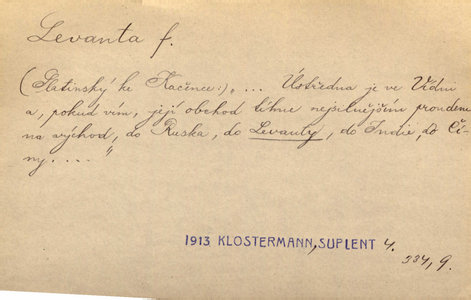 Levanta f.
(Slatinský ke Kačence:) „... Ústředna je ve Vídni
a, pokud vím, její obchod tíhne nejsilnějším proudem
na východ, do Ruska, do Levanty, do Indie, do Čí-
ny. ...."
1913 KLOSTERMANN, SUPLENT 4.
334, 9.